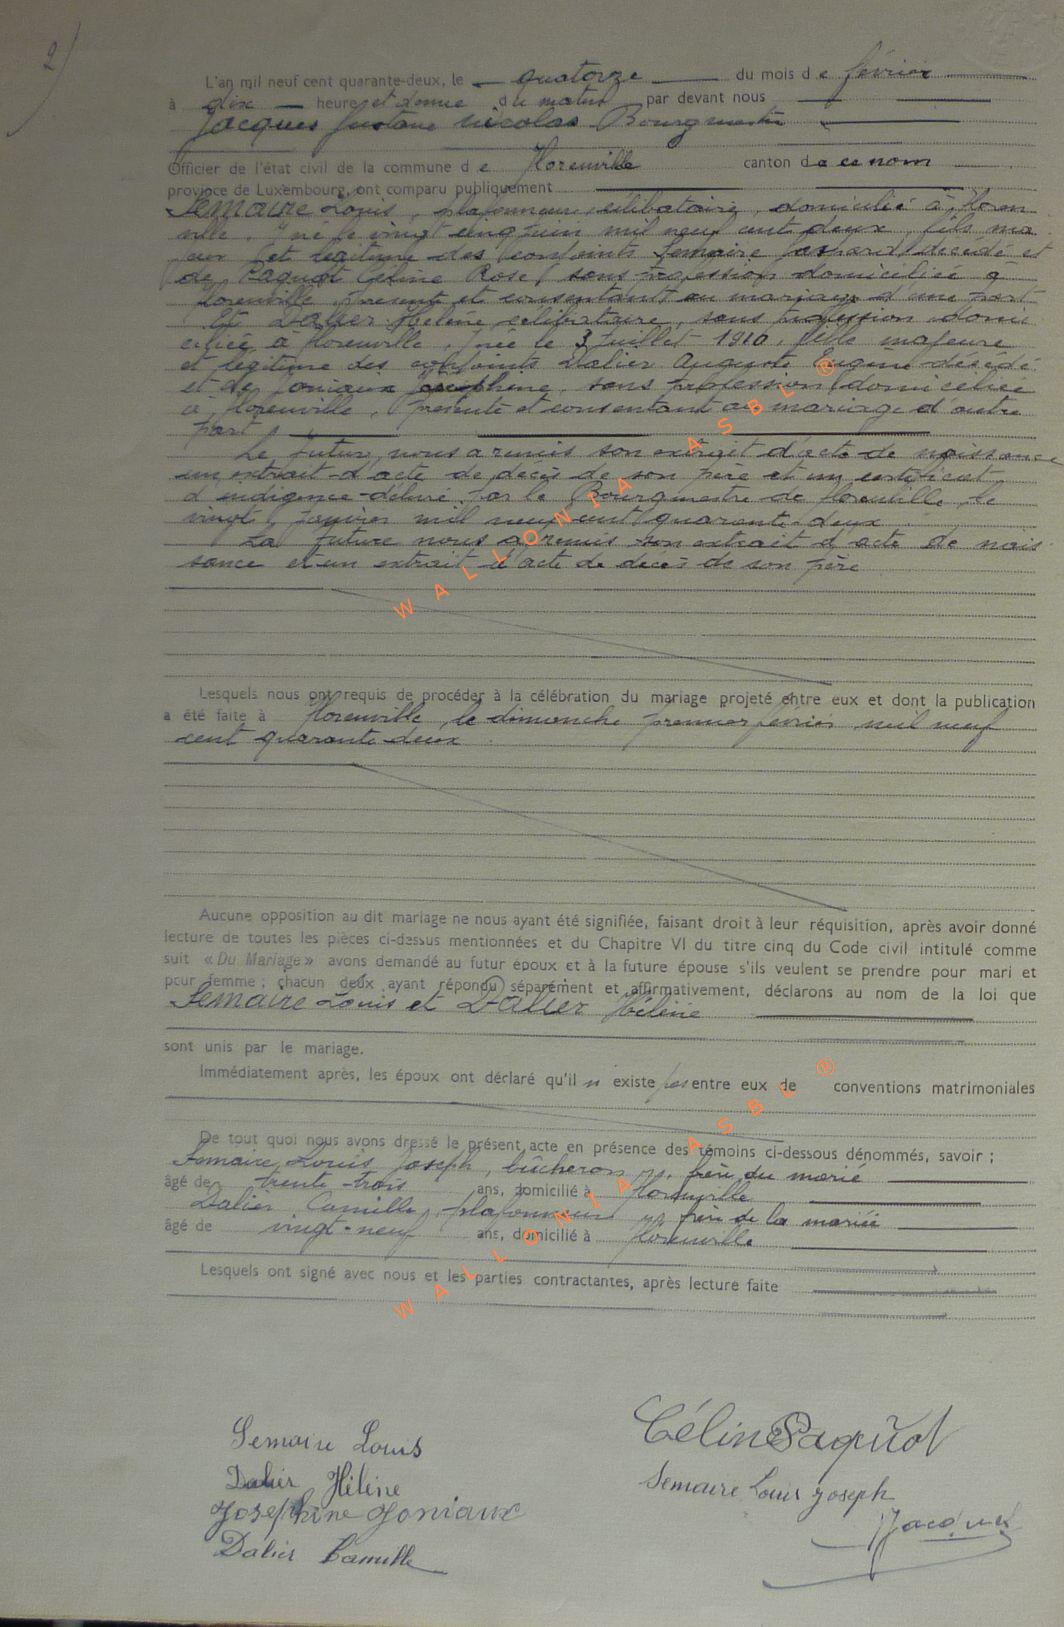 2)
L'an mil neuf cent quarante-deux, le quatorze du mois de février
à dix heures et demie du matin par devant nous
Jacques Gustave Nicolas Bourgmestre
Officier de l'état civil de la commune de Florenville canton de ce nom
province de Luxembourg, ont comparu publiquement
Semaire Louis, plafonneur, célibataire, domicilié à Floren
ville, né le vingt cinq juin mil neuf cent deux, fils ma
jeur et légitime des conjoints Semaire décédé et
de Paquot Céline Rose, sans profession domiciliée à
Florenville, présente et consentant au mariage d'une part
Et Dalier Hélène célibataire, sans profession domi
ciliée à Florenville, née le 3 Juillet 1910, fille majeure
et légitime des conjoints Dalier Auguste Eugène décédé
et de Joniaux Joséphine, sans profession domiciliée
à Florenville, présente et consentant au mariage d'autre
part
Le futur nous a remis son extrait d'acte de naissance
un extrait d'acte de decès de son père et un certificat
d'indigence délivré par le Bourgmestre de Florenville le
vingt janvier mil neuf cent quarante-deux
La future nous a remis son extrait d'acte de nais
sance et un extrait d'acte de deces de son père
WALLONIA ASBL ®
Lesquels nous ont requis de procéder à la célébration du mariage projeté entre eux et dont la publication
a été faite à Florenville le dimanche premier février mil neuf
cent quarante deux.
Aucune opposition au dit mariage ne nous ayant été signifiée, faisant droit à leur réquisition, après avoir donné
lecture de toutes les pièces ci-dessus mentionnées et du Chapitre VI du titre cinq du Code civil intitulé comme
suit « Du Mariage » avons demandé au futur époux et à la future épouse s'ils veulent se prendre pour mari et
pour femme ; chacun deux ayant répondu séparément et affirmativement, déclarons au nom de la loi que
Semaire Louis et Dalier Hélène
sont unis par le mariage.
Immédiatement après, les époux ont déclaré qu'il n'existe pas entre eux de conventions matrimoniales
De tout quoi nous avons dressé le présent acte en présence des témoins ci-dessous dénommés, savoir ;
Semaire Louis Joseph, bûcheron frère du marié
âgé de trente-trois ans, domicilié à Florenville
Dalier Camille, plafonneur frère de la mariée
âgé de vingt-neuf ans, domicilié à Florenville
Lesquels ont signé avec nous et les parties contractantes, après lecture faite
WALLONIA ASBL ®
Semaire Louis
Dalier Hélène
Joséphine Joniaux
Dalier Camille
Céline Paquot
Semaire Louis Joseph
Jacques